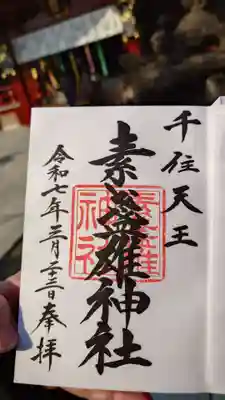 千住天王
素盞雄神社
令和七年三月二十三日奉拝